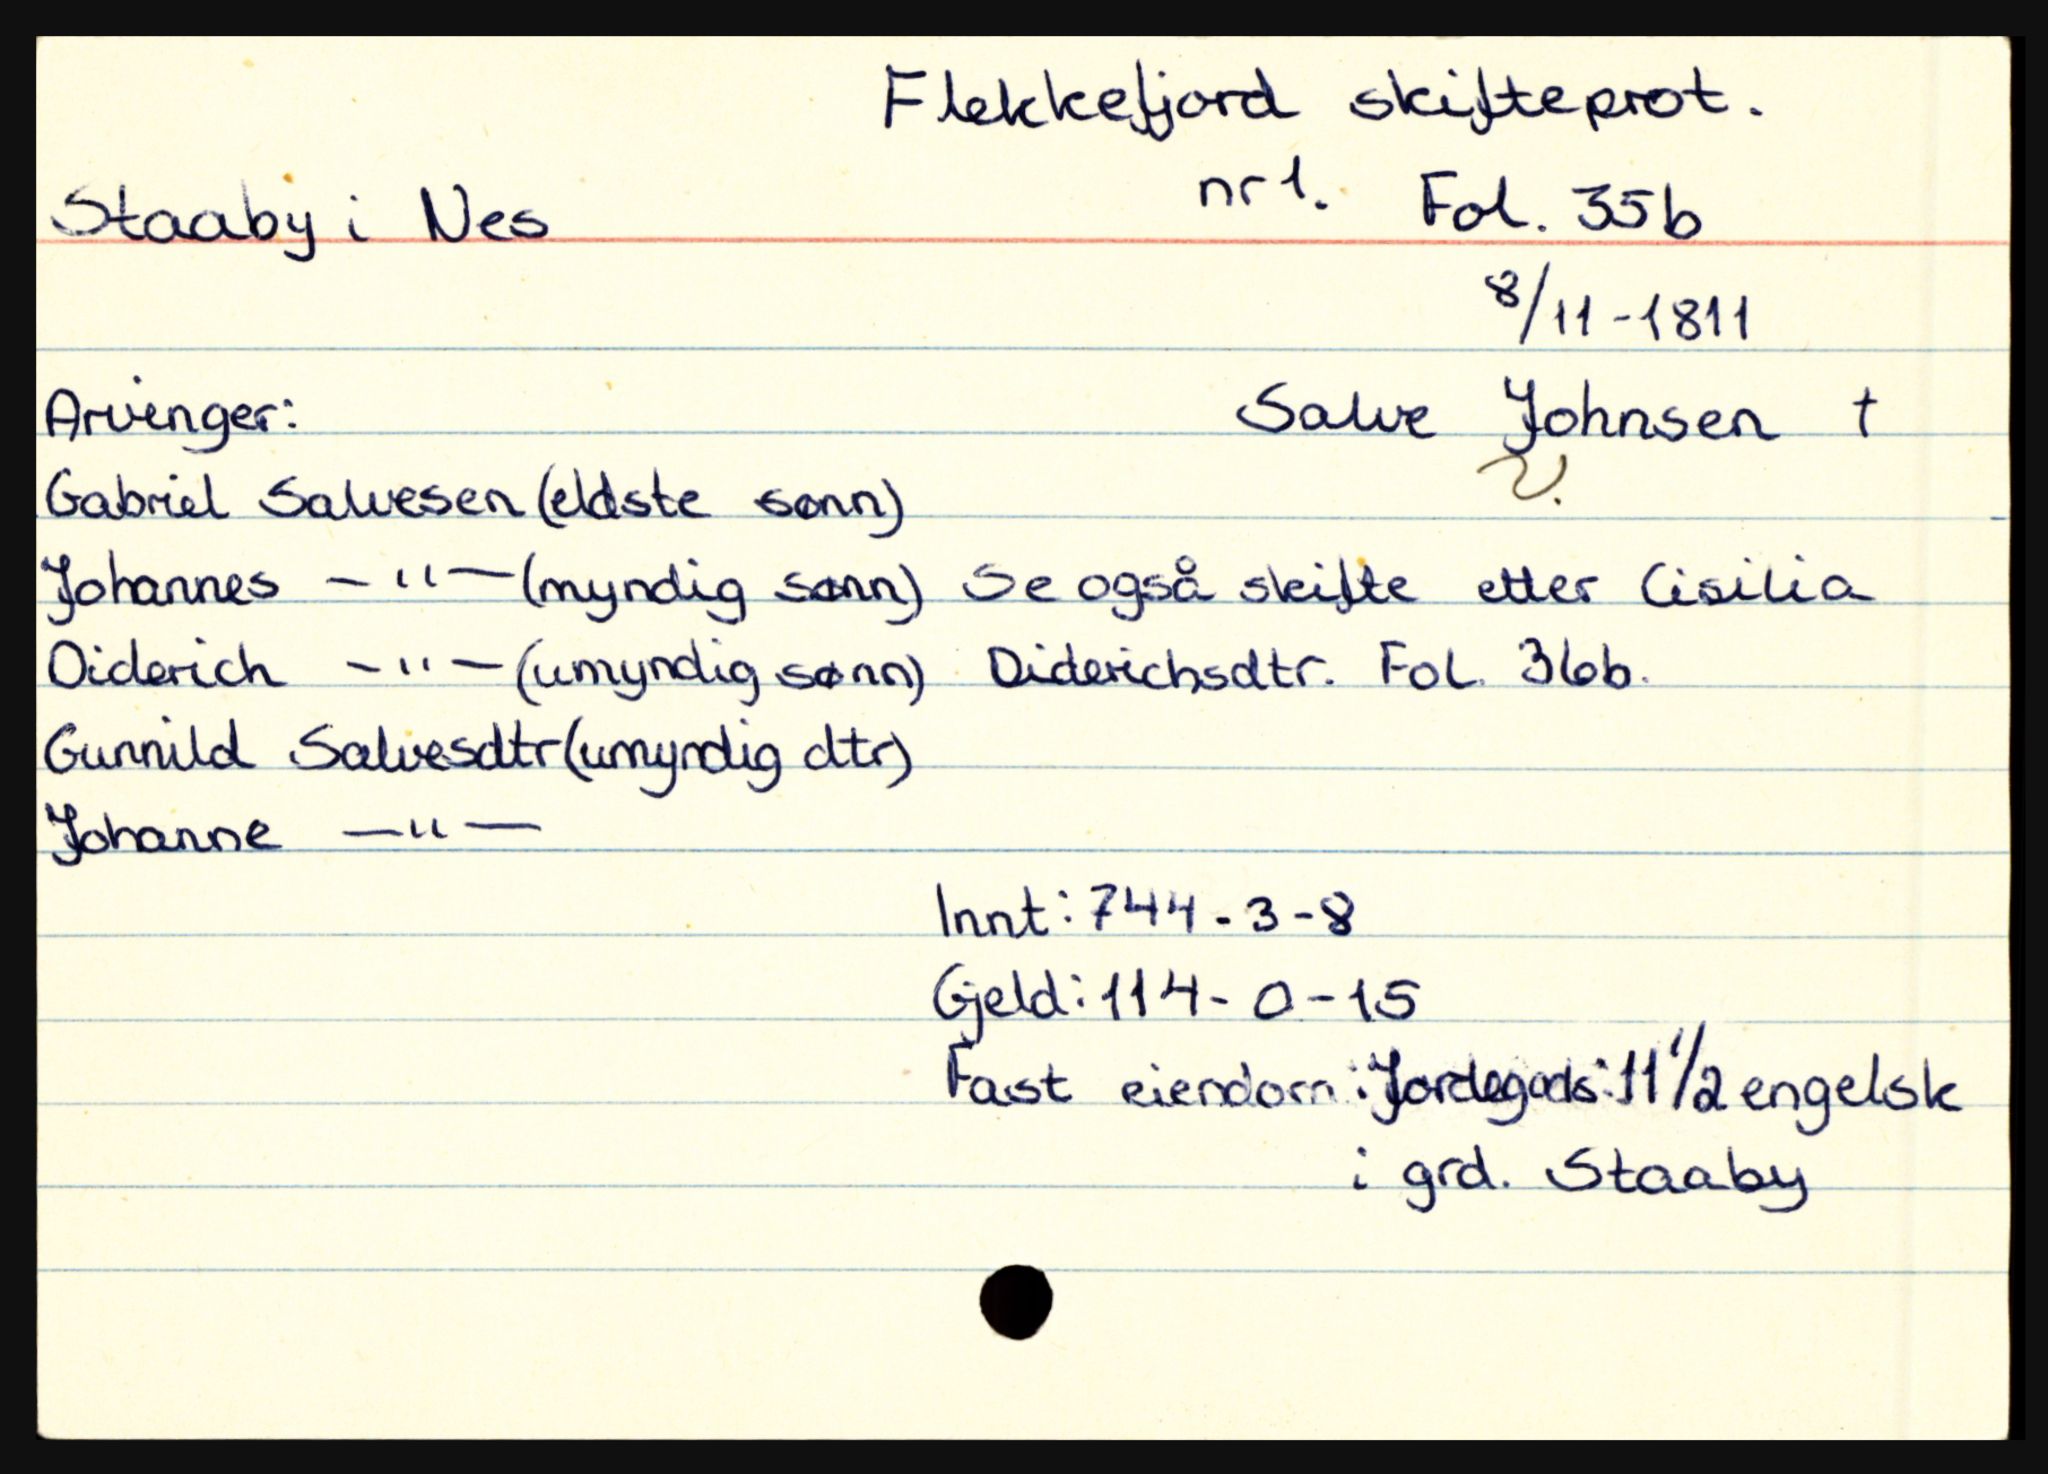 Flekkefjord skifteprot.
nr 1. Fol. 35b
Staaby i Nes
8/11-1811
Arvinger: Salve Johnsen †
Gabriel Salvesen (eldste sønn)
Johannes —"— (myndig sønn) Se også skifte etter Cisilia
Diderich —"— (umyndig sønn) Diderichsdtr. Fol. 36b.
Gunnild Salvesdtr (umyndig dtr)
Johanne —"—
Innt: 744-3-8
Gjeld: 114-0-15
Fast eiendom: Jordegods: 11 1/2 engelsk
i grd. Staaby